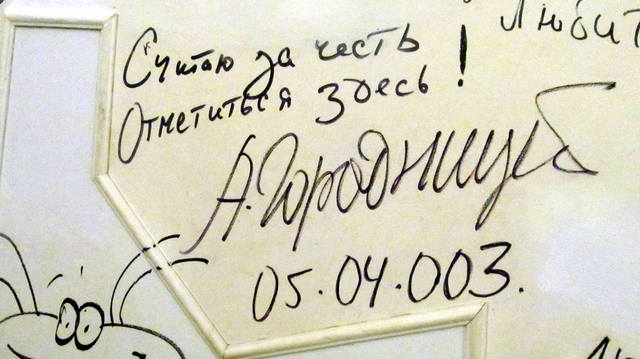 Любит
Считаю за честь
отметиться здесь!
А. Городниц
05.04.003.